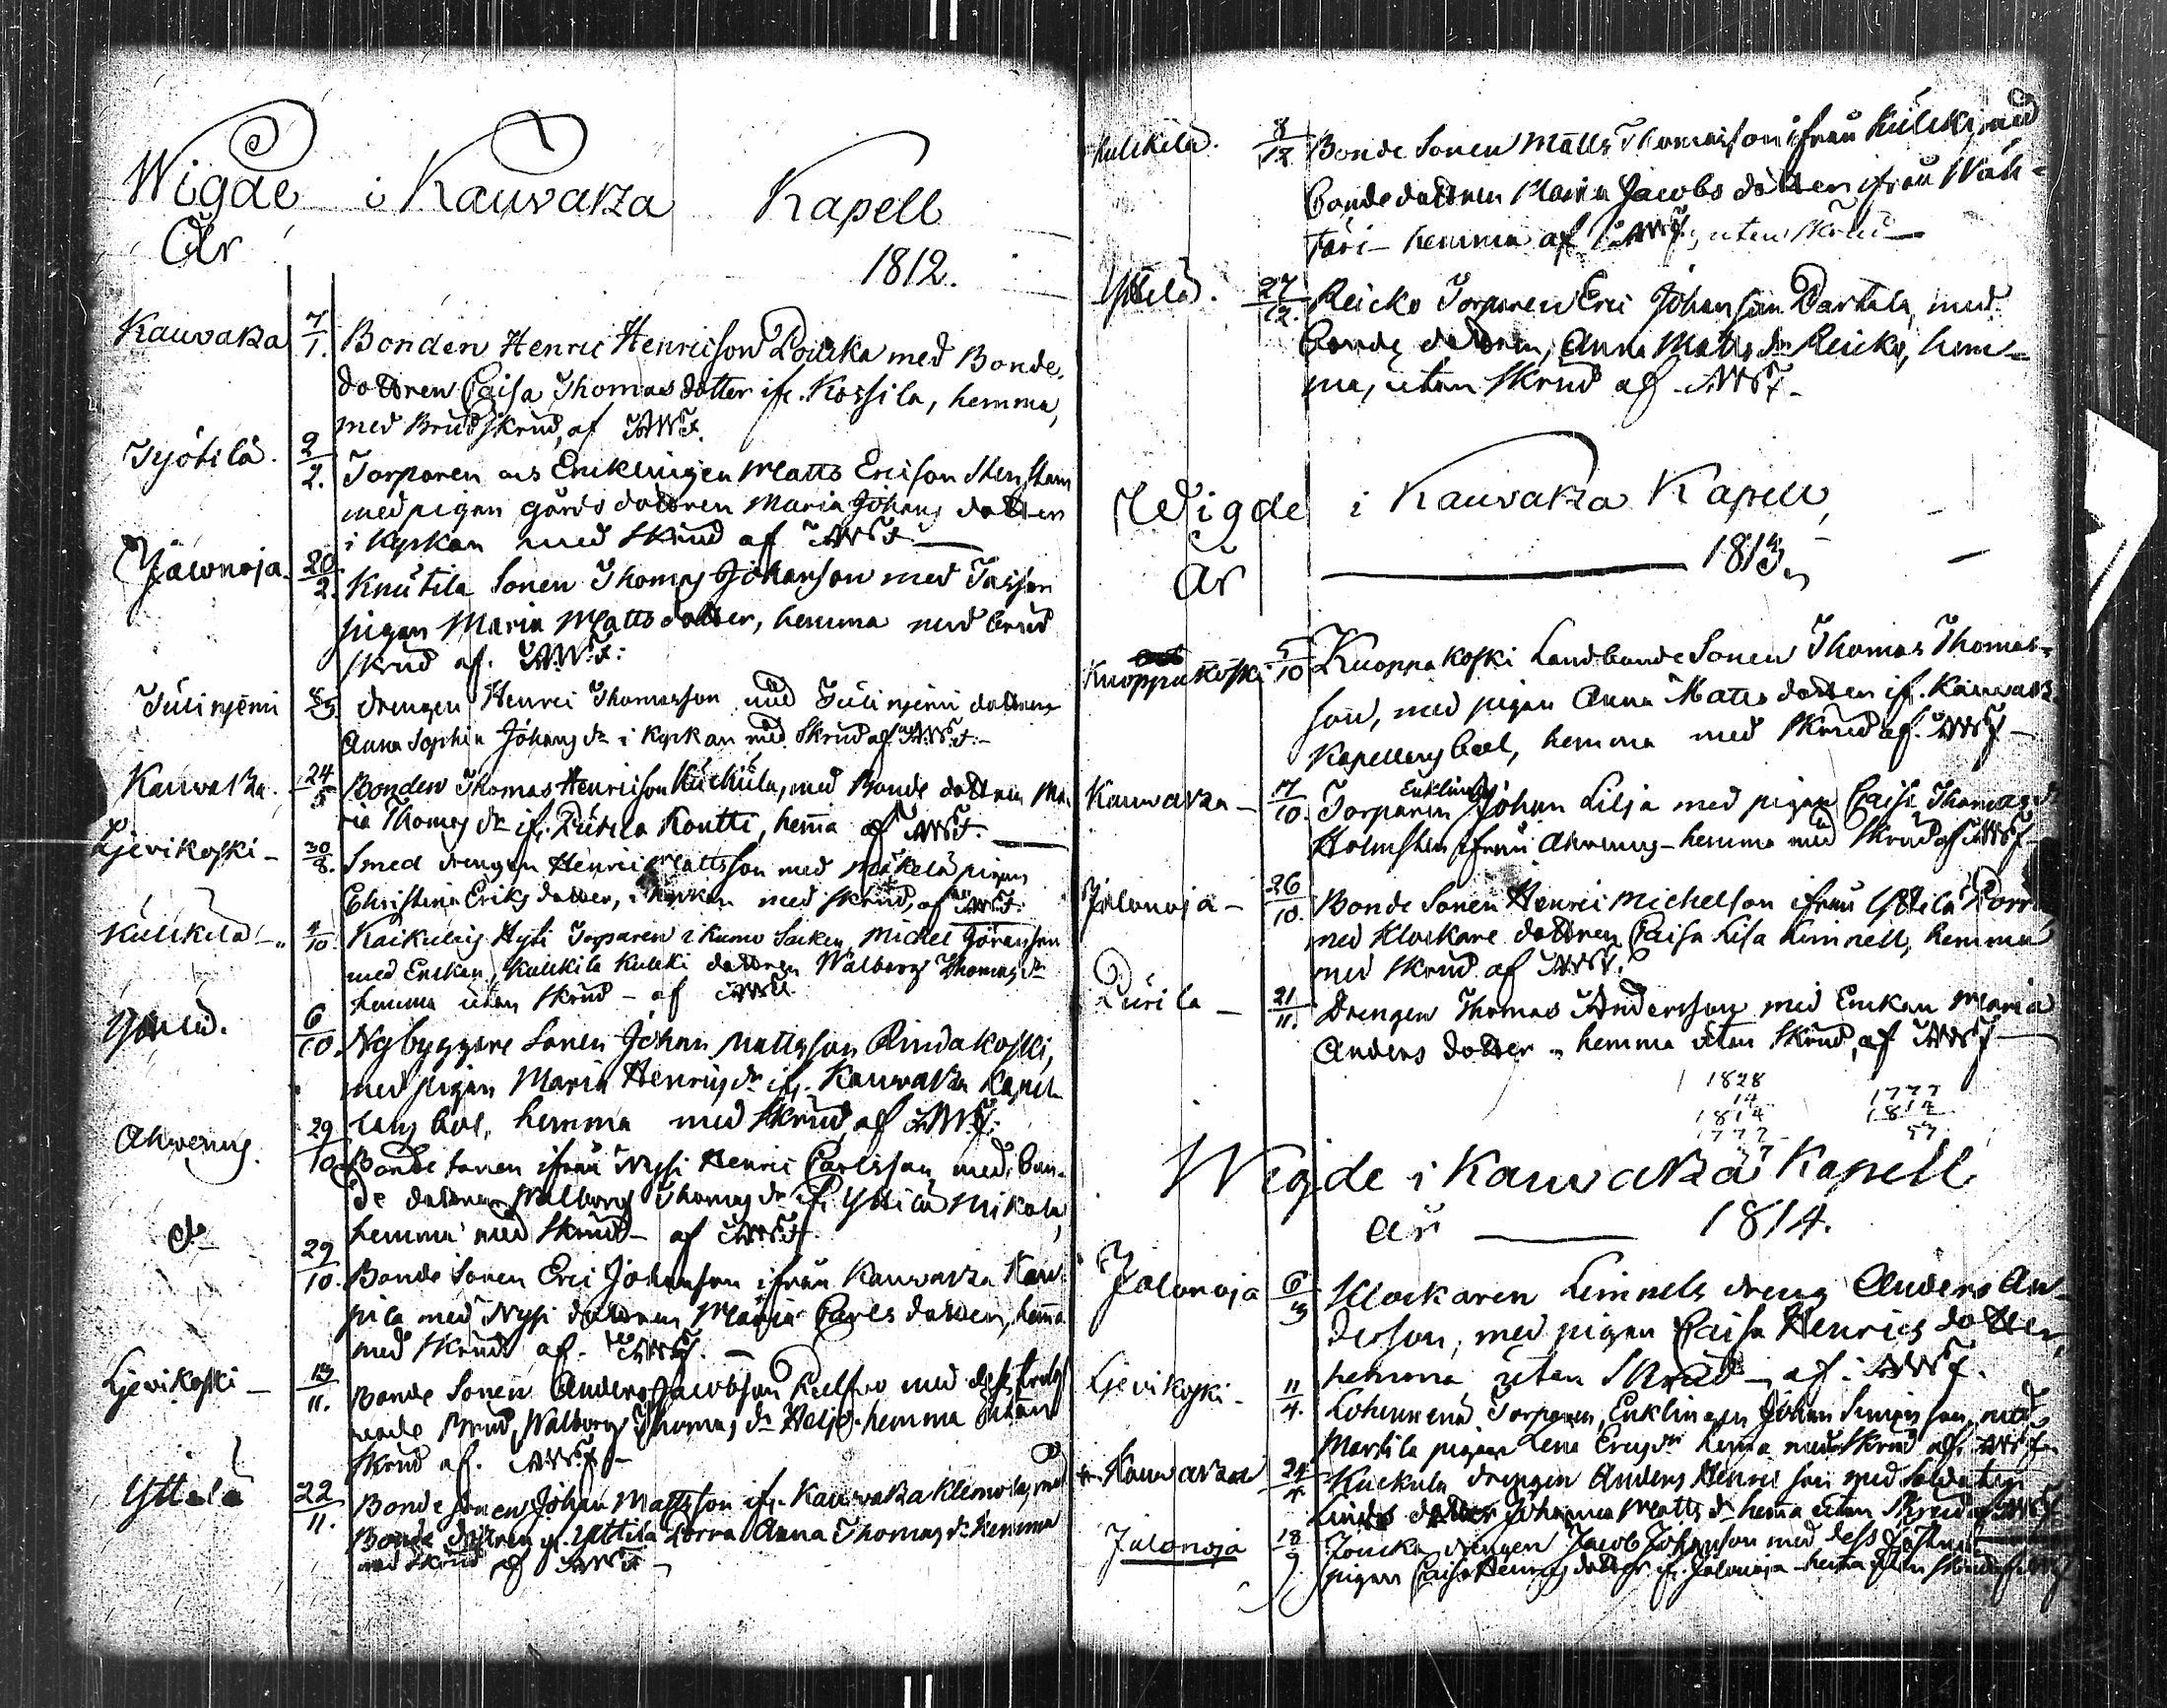 Wigde i Kauvatza Kapell
År 1812.
Kauvatza 7/1. Bonden Henric Henricson Loucka med Bonde-
dottren Caisa Thomasdotter ifr. Kossila, hemma,
med Brudskrud, af AWF.
Työtilä. 9/2. Torparen och Encklingen Matts Ericson Stenstam
med pigan gårds dottren Maria Johans dotter
i Kyrkan med Skrud af AWF.
Jawnoja. 20/2. Knutila Sonen Thomas Johanson med
pigan Maria Matts dotter, hemma med brud
skrud af. AWF:
Drengen Henric Thomasson med dottren
Anna Sophia Johans dr i Kyrkan med Skrud af AWF.-
Kauvatza. 24/5 Bonden Thomas Henricson Kuckula, med Bonde dottren Ma-
ria Thomas dr if. Koutti, hema af AWF.
Ljevikoski - 30/8. Smed drengen Henric Mattsson med Mäkelä pigan
Christina Eriks dotter, i kyrkan med skrud, af AWF.
Kulkkila - 4/10. Hysi Torparen i Kumo Socken, Michel Göranson
med Enckan, Kulkkila dottren Walborg Thomas dr
hemma utan Skrud - af AWF
Yttilä. 6/10. Nybyggare Sonen Johan Mattsson Rindakoski,
med pigan Maria Henrics dr if. Kauvatza Kapel-
lans bol, hemma med Skrud, af AWF:
Ahvenus. 29/10 Bonde sonen ifrån Nysi Henric Carlsson, med bon-
de dottren Walborg Thomas dr if. Yttilä Nikola,
hemma med Skrud - af AWF.
d:o 29/10. Bonde Sonen Eric Johanson ifrån Kauvatza Kau-
pila med Nysi dottren Maria Carls dotter, hema
med Skrud af. AWF. -
Ljevikoski - 13/11. Bonde Sonen Anders Jacobson med dess
Brud, Walborg Thomas dr Heljo - hemma utan
Skrud af. AWF -
Yttilä 22/11. Bonde Sonen Johan Mattsson ifr. Kauvatza Klemola, med
Bonde dottren if. Yttilä Porra Anna Thomas dr hemma
med Skrud af AWF -
Kulkkila. 8/12 Bonde Sonen Matts Thomasson ifrån Kulkki, med
bonde dottren Maria Jacobs dotter ifrån Wäh-
täri - hemma af AWF, utan Skrud -
Yttilä. 27/12. Reicko Torparen Eric Johanson Dartala, med
bonde dottren, Anna Matts dr Reicko, hem-
ma, utan Skrud af AWF -
Wigde i Kauvatza Kapell,
År 1813.
Kuoppakoski 5/10 Kuoppakoski Landbonde Sonen Thomas Thomas-
son, med pigan Anna Matts dotter if. Kauvatza
Kapellans bol, hemma med Skrud af. AWF -
Kauvatza - 17/10. Torparen Enklingen Johan Lilja med pigan Caisa Thomas dr
Holmsten ifrån Ahvenus - hemma med Skrud af AWF -
Jalonoja - 26/10. Bonde Sonen Henric Michelson ifrån Yttilä Porra
med Klockare dottren Caisa Lisa Limnell, hemma
med Skrud af AWF.
Purila - 21/11. Drengen Thomas Andersson med Enckan Maria
Anders dotter - hemma utan Skrud, af AWF
1828 1777
14 1814
1814 37
1777
37
Wigde i Kauvatza Kapell
år 1814.
Jalonoja 6/3 Klockaren Limnels dreng Anders An-
derson, med pigan Caisa Henrics dotter,
hemma, utan Skrud - af. AWF.
Ljevikoski - 11/4. Torparen, Enklingen Johan Simonson, med
Marttila pigan Lena Erics dr hema med Skrud af. AWF.
Kauvatza 24/4 Kuckula drengen Anders Henricson med Soldaten
Linds dotter Johanna Matts dr hema utan Skrud af AWF
Jalonoja 18/9 Joucka drengen Jacob Johanson med dess
pigan Caisa Henrics dotter if. Jalonoja - hema utan skrud af AWF